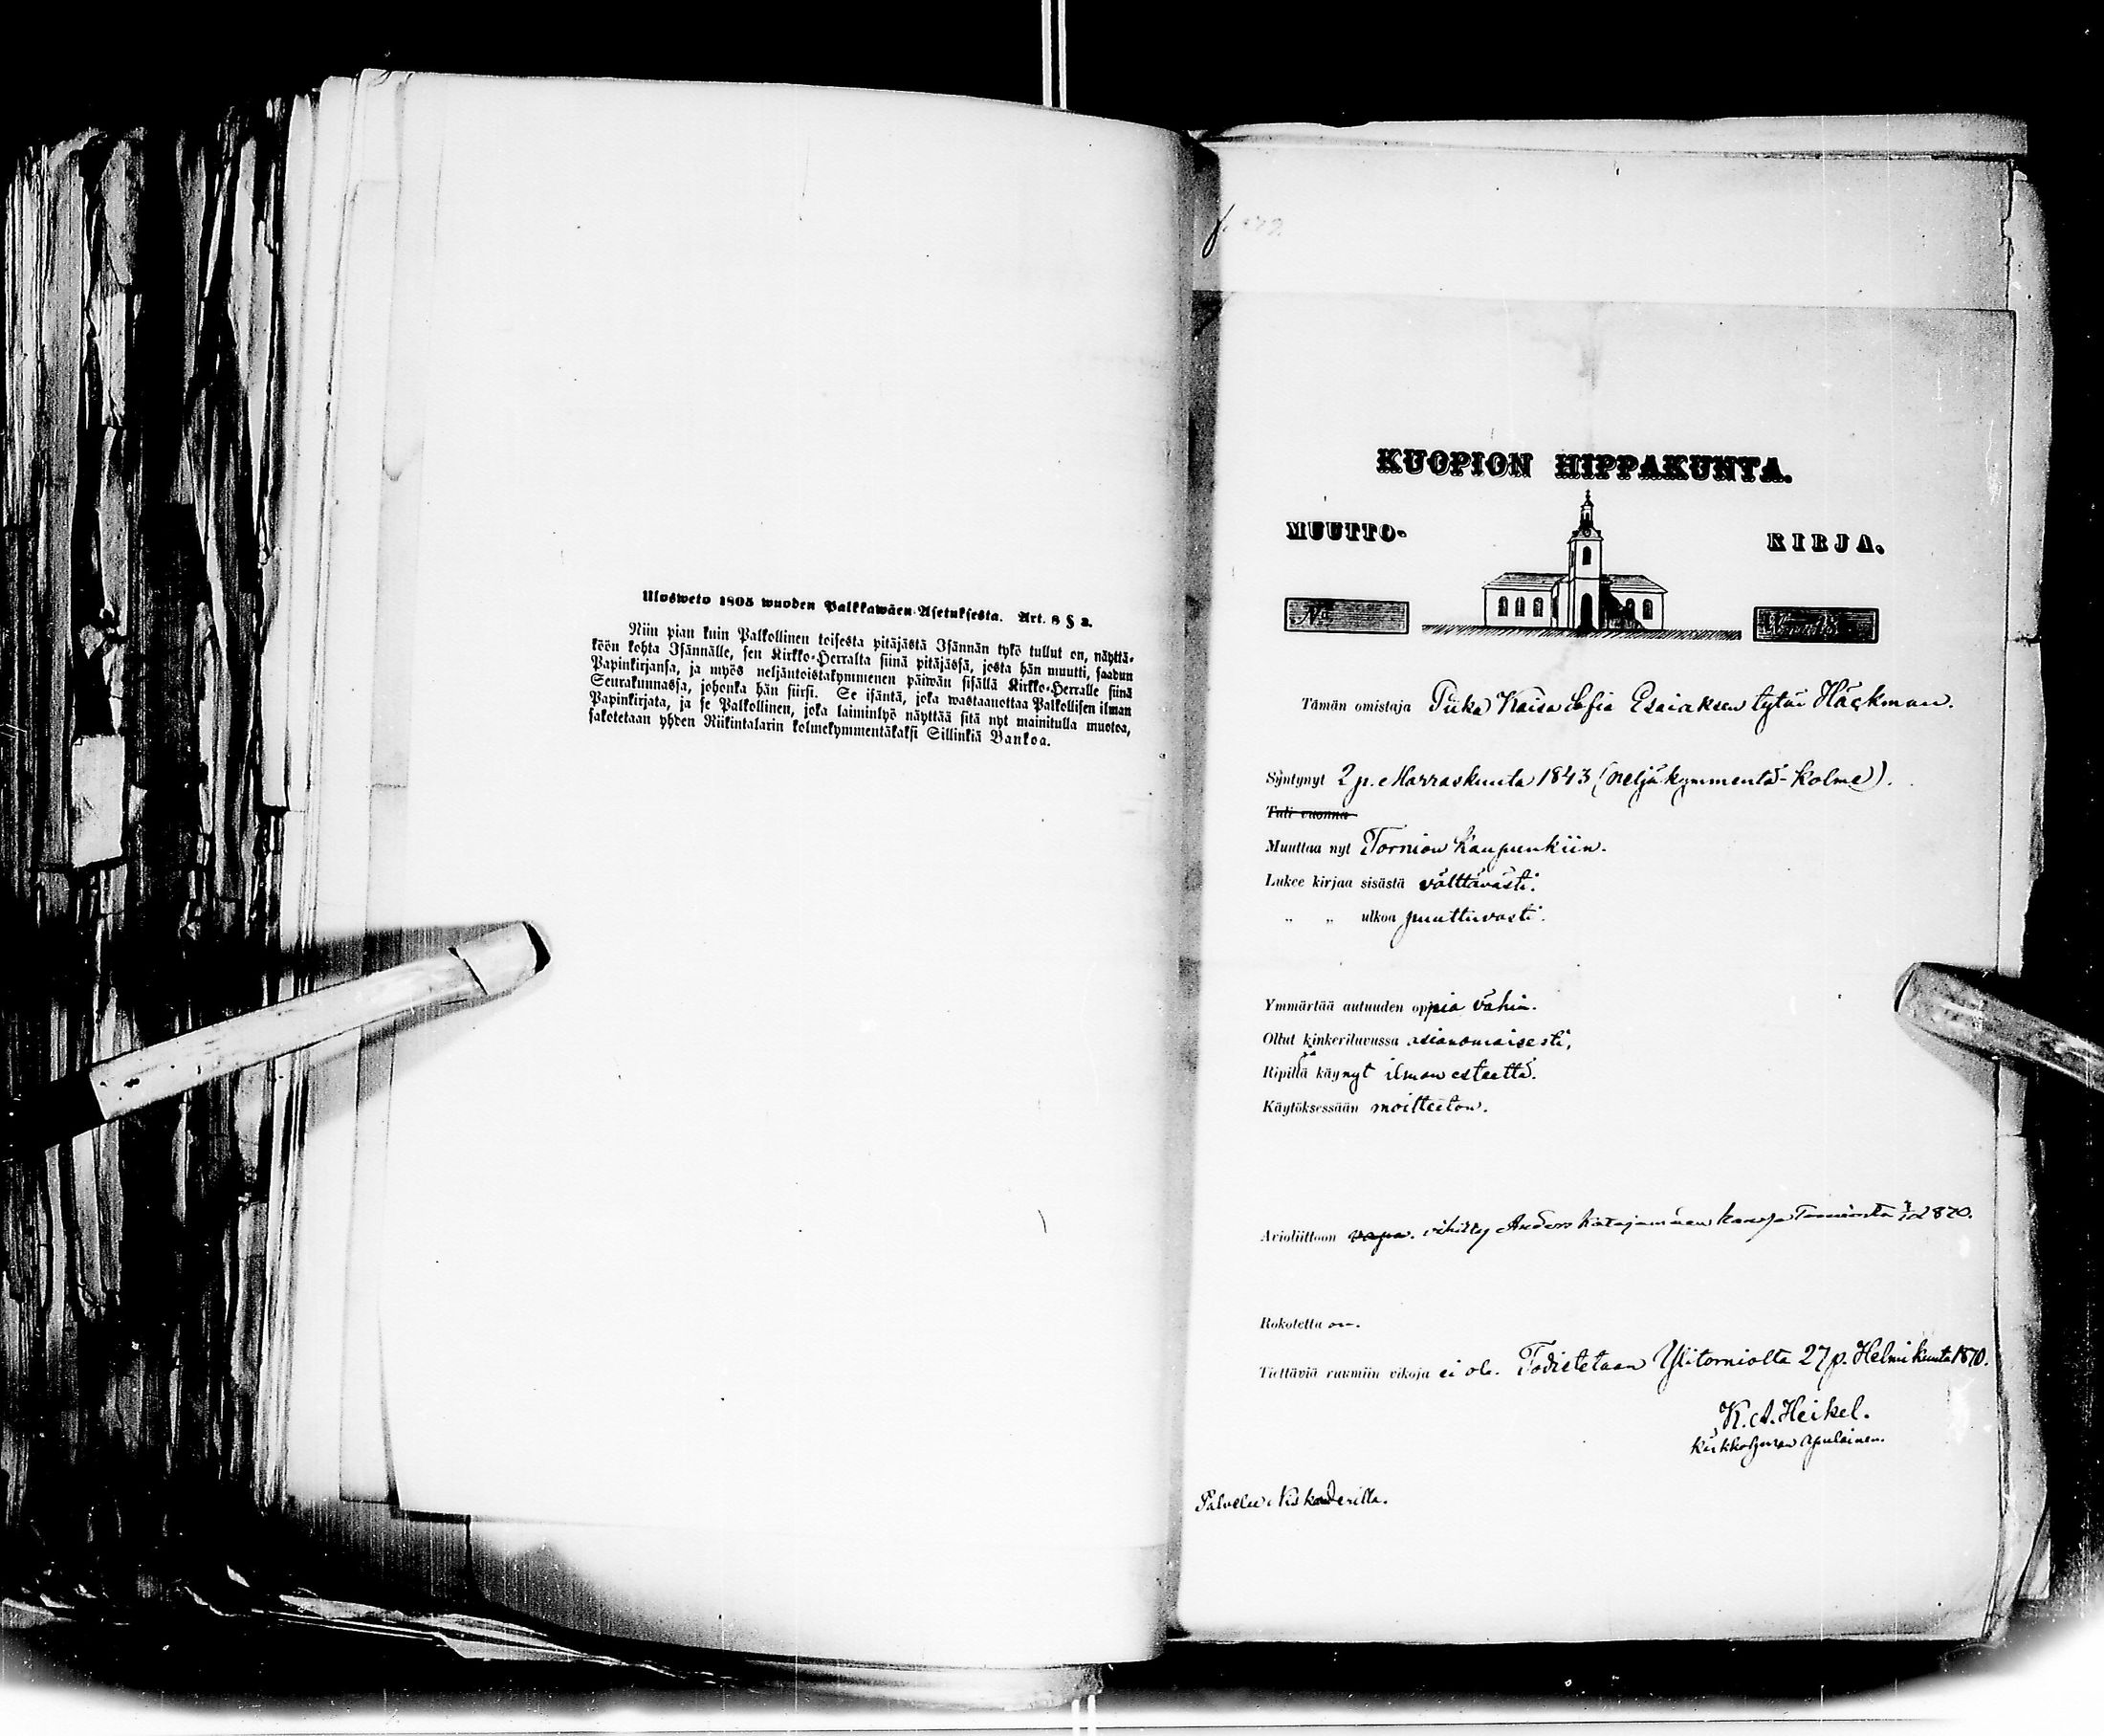 Ulosweto 1805 wuoden Palkkawäen-Asetuksesta. Art. 8 § 2.
Niin pian kuin Palkollinen toisesta pitäjästä Isännän tykö tullut on, näyttä-
köön kohta Isännälle, sen Kirkko-Herralta siinä pitäjässä, josta hän muutti, saadun
Papinkirjansa, ja myös neljäntoistakymmenen päiwän sisällä Kirkko-Herralle siinä
Seurakunnassa, johonka hän siirsi. Se isäntä, joka wastaanottaa Palkollisen ilman
Papinkirjata, ja se Palkollinen, joka laiminlyö näyttää sitä nyt mainitulla muotoa,
sakotetaan yhden Riikintalarin kolmekymmentäkaksi Sillinkiä Bankoa.
KUOPION HIPPAKUNTA.
MUUTTO- KIRJA.
No
Tämän omistaja Piika Kaisa Sofia Esaiaksen tytär Häckman.
Syntynyt 2 p. Marraskuuta 1843 (neljäkymmentä-kolme).
Tuli vuonna
Muuttaa nyt Tornion kaupunkiin.
Lukee kirjaa sisästä välttävästi.
„ „ ulkoa puuttuvasti.
Ymmärtää autuuden oppia vähin.
Ollut kinkeriluvussa asianomaisesti,
Ripillä käynyt ilman esteettä.
Käytöksessään moitteeton.
Avioliittoon vapa. vihitty Anders kanssa 1870.
Rokotettu on.
Tiettäviä ruumiin vikoja ei ole. Todistetaan Ylitorniolta 27 p. Helmikuuta 1870.
K. A. Heikel.
Kirkkoherran apulainen.
Palvelee